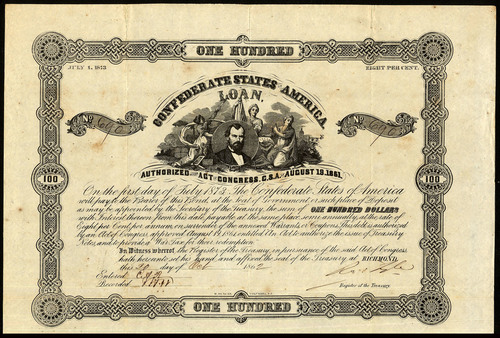 ONE HUNDRED
JULY 1, 1873
EIGHT PER CENT.
CONFEDERATE STATES AMERICA.
LOAN,
No
No
AUTHORIZED ACT CONGRESS, C.S.A. AUGUST 19, 1861.
100
100
On the first day of July 1873 The Confederate States of America
will pay to the Bearer of this Bond, at the seat of Government or such place of Deposit
as may be appointed by the Secretary of the Treasury, the sum of ONE HUNDRED DOLLARS
with Interest thereon from this date, payable at the same place, semi annually, at the rate of
Eight per Cent per annum, on surrender of the annexed Warrants or Coupons. This debt is authorized
by an Act of Congress approved August 19, 1861, entitled An Act to authorize the issue of Treasury
Notes, and to provide a War Tax for their redemption.
In Witness whereof, the Register of the Treasury, in pursuance of the said Act of Congress
hath hereunto set his hand, and affixed the seal of the Treasury, at RICHMOND,
this day of 1862
Entered
Recorded
Register of the Treasury
ONE HUNDRED